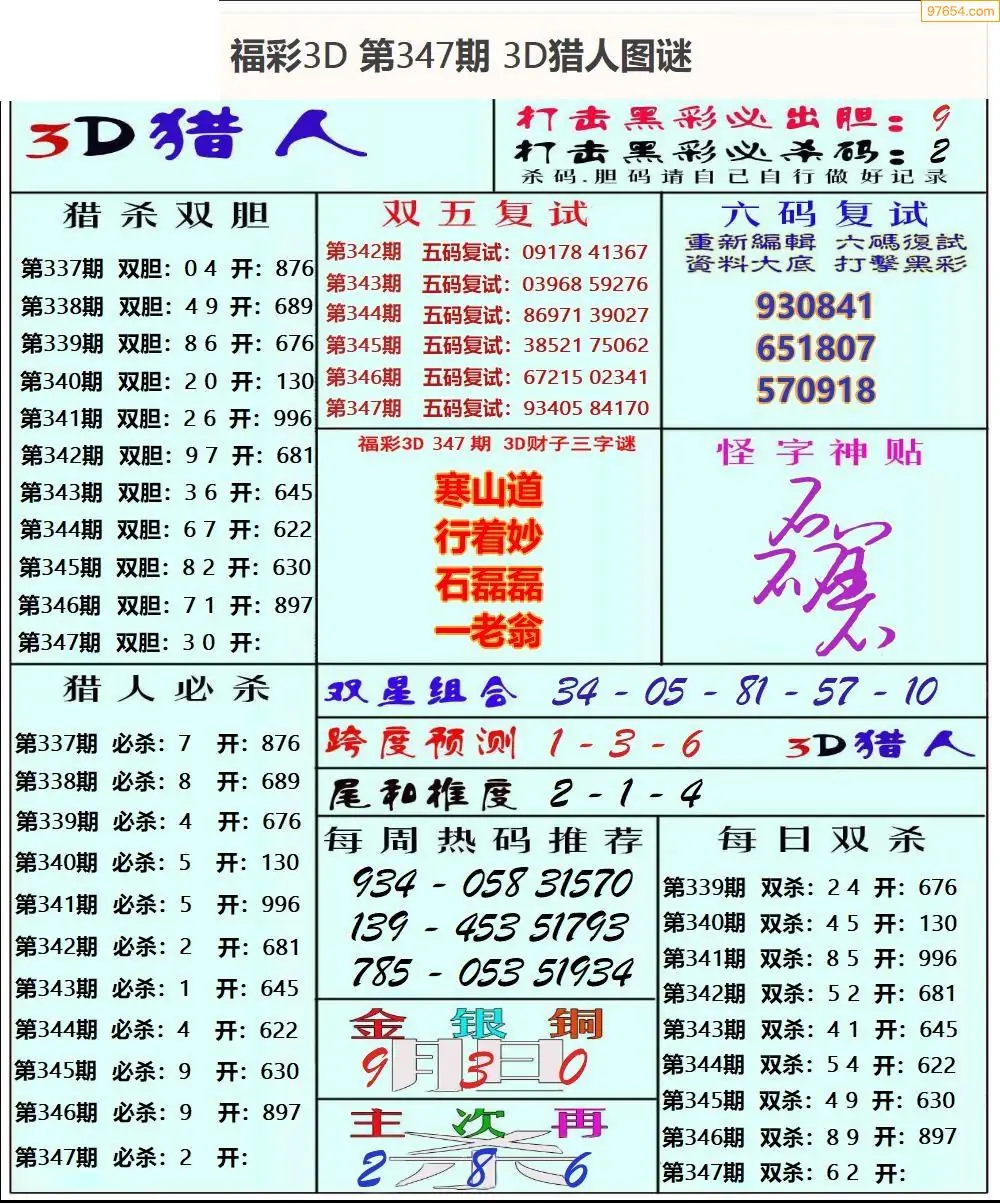 97654.com
福彩3D 第347期 3D猎人图谜
3D猎人
打击黑彩必出胆：9
打击黑彩必杀码：2
杀码.胆码请自己自行做好记录
猎杀双胆
第337期 双胆：0 4 开：876
第338期 双胆：4 9 开：689
第339期 双胆：8 6 开：676
第340期 双胆：2 0 开：130
第341期 双胆：2 6 开：996
第342期 双胆：9 7 开：681
第343期 双胆：3 6 开：645
第344期 双胆：6 7 开：622
第345期 双胆：8 2 开：630
第346期 双胆：7 1 开：897
第347期 双胆：3 0 开：
双五复试
第342期 五码复试：09178 41367
第343期 五码复试：03968 59276
第344期 五码复试：86971 39027
第345期 五码复试：38521 75062
第346期 五码复试：67215 02341
第347期 五码复试：93405 84170
六码复试
重新編輯 六碼復試
資料大底 打擊黑彩
930841
651807
570918
福彩3D 347 期 3D财子三字谜
寒山道
行着妙
石磊磊
一老翁
怪字神贴
猎人必杀
第337期 必杀：7 开：876
第338期 必杀：8 开：689
第339期 必杀：4 开：676
第340期 必杀：5 开：130
第341期 必杀：5 开：996
第342期 必杀：2 开：681
第343期 必杀：1 开：645
第344期 必杀：4 开：622
第345期 必杀：9 开：630
第346期 必杀：9 开：897
第347期 必杀：2 开：
双星组合 34 - 05 - 81 - 57 - 10
跨度预测 1 - 3 - 6 3D猎人
尾和推度 2 - 1 - 4
每周热码推荐
934 - 058 31570
139 - 453 51793
785 - 053 51934
金银铜
胆
9 3 0
主次再
杀
2 8 6
每日双杀
第339期 双杀：2 4 开：676
第340期 双杀：4 5 开：130
第341期 双杀：8 5 开：996
第342期 双杀：5 2 开：681
第343期 双杀：4 1 开：645
第344期 双杀：5 4 开：622
第345期 双杀：4 9 开：630
第346期 双杀：8 9 开：897
第347期 双杀：6 2 开：